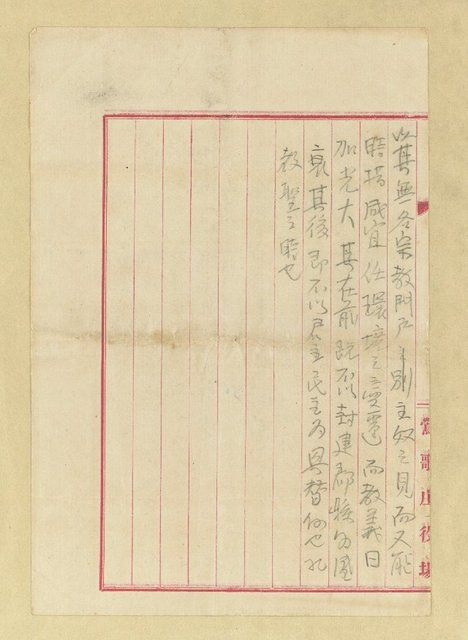 以其無各宗教門戶之別主奴之見而又能
時措咸宜任環境之變遷而教義日
加光大其在前既不以封建郡縣為盛
衰其後即不以君主民主為興替仰也孔
教聖之時也
鶯歌庄役場